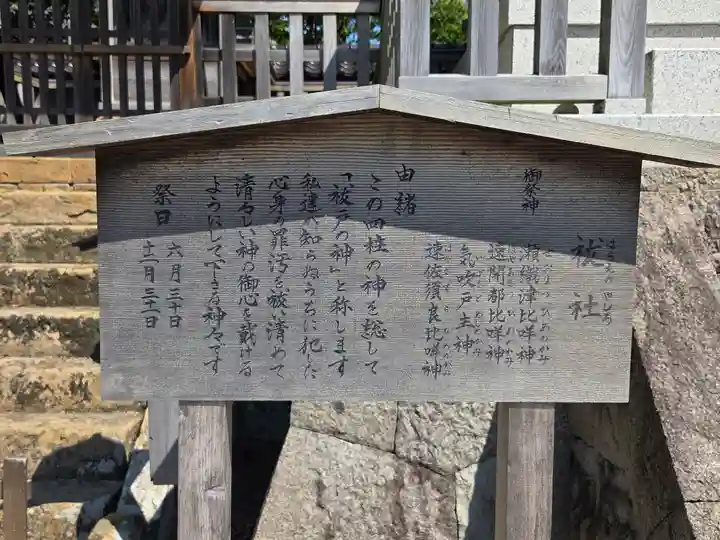 祓社
はらえの やしろ
御祭神
瀬織津比咩神
速開都比咩神
氣吹戸主神
速佐須良比咩神
由緒
この四柱の神を総して
「祓戸の神」と称します
私達が知らぬうちに犯した
心身の罪汚を祓い清めて
清々しい神の御心を戴ける
ようにして下さる神々です
祭日
六月三十日
十二月三十一日